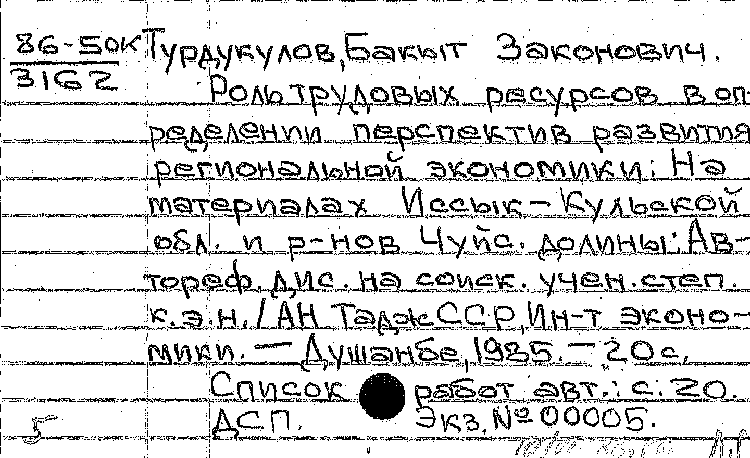 86-50к Турдукулов, Бакыт Законович.
3162
Роль трудовых ресурсов в оп-
ределении перспектив развития
региональной экономики: На
материалах Иссык-Кульской
обл. и р-нов Чуйс. долины: Ав-
тореф. дис. на соиск. учен. степ.
к.э.н. / АН ТаджССР, Ин-т эконо-
мики. — Душанбе, 1985. — 20с.
Список работ авт.: с. 20.
5 ДСП. Экз. № 00005.